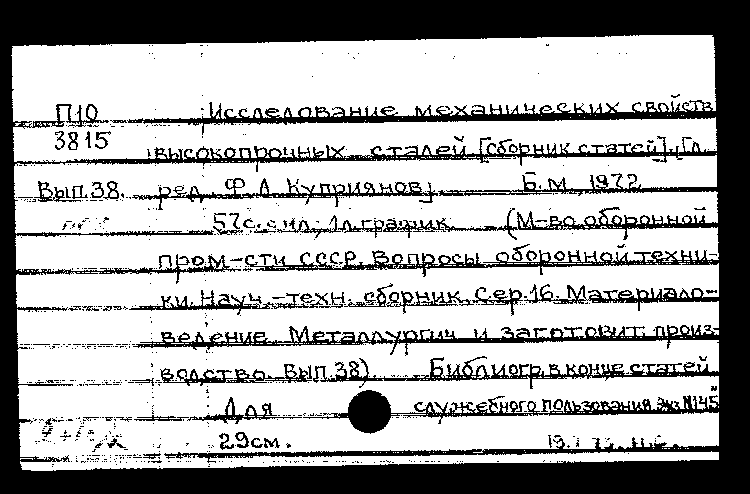 П10 Исследование механических свойств
3815 высокопрочных сталей [сборник статей]. [Гл.
Вып.38. ред. Ф.А. Куприянов]. Б.м., 1972
57с. с ил.; 1л.график. (М-во оборонной
пром-сти СССР. Вопросы оборонной техни-
ки. Науч.-техн. сборник. Сер.16. Материало-
ведение. Металлургич. и заготовит. произ-
водство. Вып.38). Библиогр. в конце статей
"Для служебного пользования. Экз.№145"
29см.